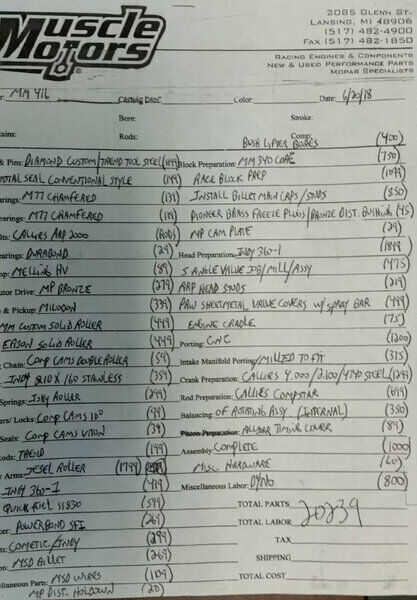 Muscle Motors
2085 GLENN ST.
LANSING, MI 48906
(517) 482-4900
FAX (517) 482-1850
RACING ENGINES & COMPONENTS
NEW & USED PERFORMANCE PARTS
MOPAR SPECIALISTS
MM 416 Casting Date Color: Date: 6/20/18
Bore: Stroke:
Mains: Rods: Comp: BUSH LIFTER BORES (400)
& Pins: DIAMOND CUSTOM/TREND TOOL STEEL Block Preparation: MM 340 CORE (750)
TOTAL SEAL CONVENTIONAL STYLE (199) RACE BLOCK PREP
Bearings: M77 CHAMFERED (139) INSTALL BILLET MAIN CAPS/STUDS (850)
Bearings: M77 CHAMFERED (119) PIONEER BRASS FREEZE PLUGS/BRONZE DIST. BUSHING (45)
Bolts: CALLIES ARP 2000 (RODS) MP CAM PLATE (29)
Bearings: DURABOND (29) Head Preparation: INDY 360-1 (1849)
Pump: MELLING HV (89) 5 ANGLE VALVE JOB/MILL/ASSY (475)
Distributor Drive: MP BRONZE (279) ARP HEAD STUDS (219)
& Pickup: MILODON (339) PAW SHEETMETAL VALVE COVERS W/ SPRAY BAR (499)
MM CUSTOM SOLID ROLLER (449) ENGINE CRADLE (75)
SOLID ROLLER (449) Porting: CNC (1200)
Chain: COMP CAMS DOUBLE ROLLER (59) Intake Manifold Porting: MILLED TO FIT (315)
INDY 210 X 160 STAINLESS (359) Crank Preparation: CALLIES 4.000/2.100/4340 STEEL (1299)
Springs: ISKY ROLLER (299) Rod Preparation: CALLIES COMPSTAR (699)
Locks: COMP CAMS 10° (99) Balancing: OF ROTATING ASSY. (INTERNAL) (350)
Seals: COMP CAMS VITON (39) Pinion Preparation: ALLSTAR TIMING COVER (89)
Rods: TREND (199) Assembly: COMPLETE (1000)
Arms: JESEL ROLLER (1799) MISC HARDWARE (60)
INDY 360-1 (419) Miscellaneous Labor: DYNO (800)
QUICK FUEL SS830 (599) TOTAL PARTS
POWERBOND SFI (269) TOTAL LABOR 20239
COMETIC/INDY (299) TAX
MSD BILLET (269) SHIPPING
Miscellaneous Parts: MSD WIRES (109) TOTAL COST
MP DIST. HOLDOWN (20)